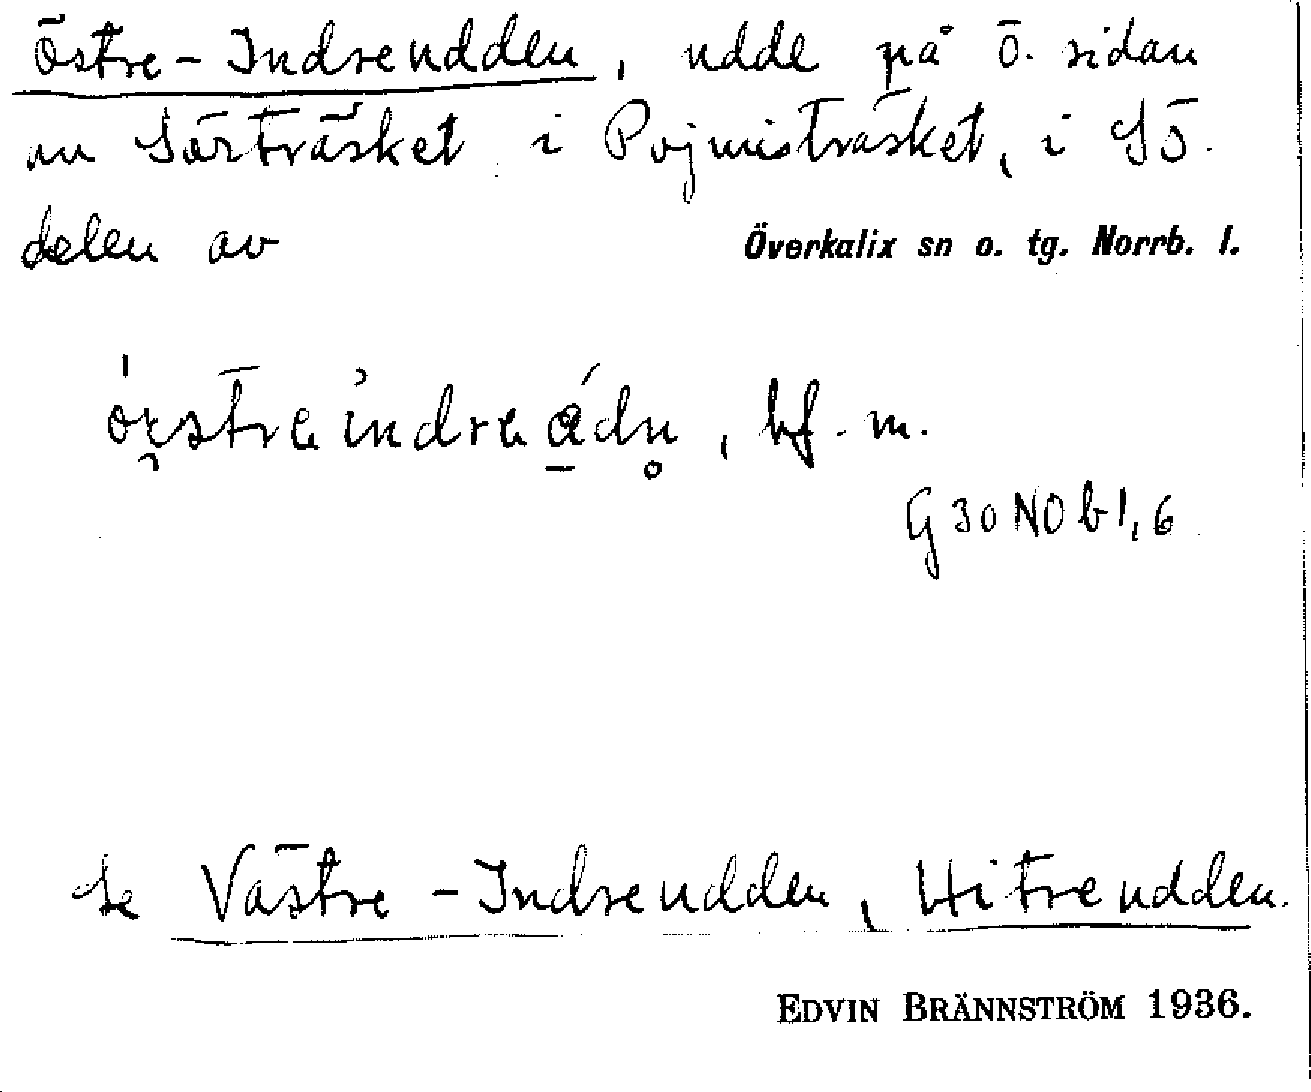 Östre-Indreudden, udde på ö. sidan
av Sörträsket i Pojmisträsket, i SÖ.
delen av Överkalix sn o. tg. Norrb. l.
bf. m.
G 30 NO b 1, 6
se Västre-Indreudden, Hitreudden.
EDVIN BRÄNNSTRÖM 1936.